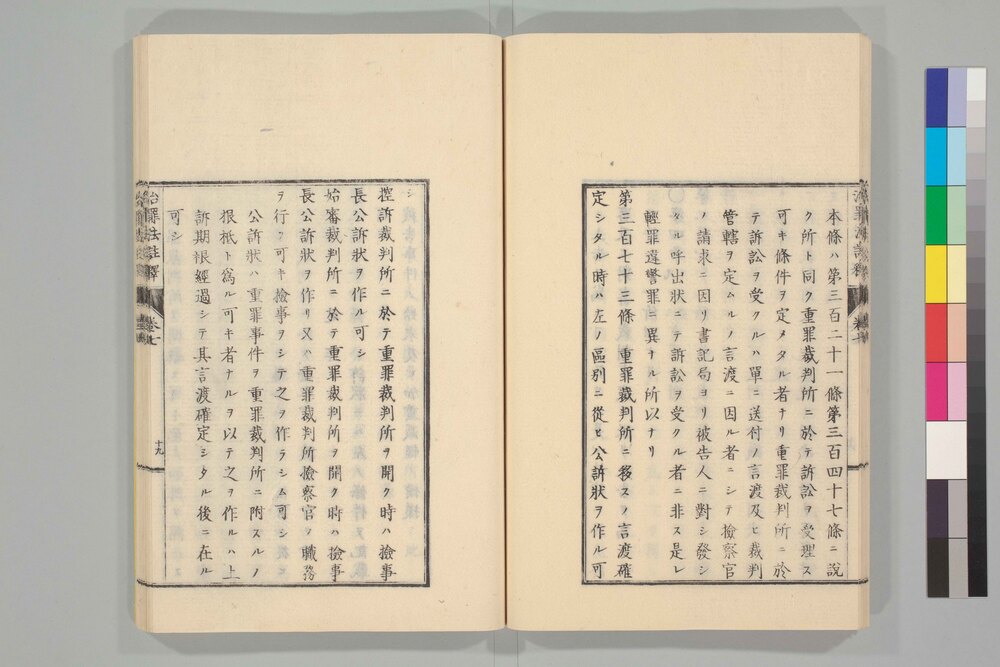 本條ハ第三百二十一條第三百四十七條ニ說
ク所ト同ク重罪裁判所ニ於テ訴訟ヲ受理ス
可キ條件ヲ定メタル者ナリ重罪裁判所ニ於
テ訴訟ヲ受クルハ單ニ送付ノ言渡及ヒ裁判
管轄ヲ定ムルノ言渡ニ因ル者ニシテ撿察官
ノ請求ニ因リ書記局ヨリ被告人ニ對シ發シ
タル呼出狀ニテ訴訟ヲ受クル者ニ非ス是レ
輕罪違警罪ニ異ナル所以ナリ
第三百七十三條 重罪裁判所ニ移スノ言渡確
定シタル時ハ左ノ區別ニ從ヒ公訴狀ヲ作ル可
シ
控訴裁判所ニ於テ重罪裁判所ヲ開ク時ハ撿事
長公訴狀ヲ作ル可シ
始審裁判所ニ於テ重罪裁判所ヲ開ク時ハ撿事
長公訴狀ヲ作リ又ハ重罪裁判所撿察官ノ職務
ヲ行フ可キ撿事ヲシテ之ヲ作ラシム可シ
公訴狀ハ重罪事件ヲ重罪裁判所ニ附スルノ
根柢ト爲ル可キ者ナルヲ以テ之ヲ作ルハ上
訴期限經過シテ其言渡確定シタル後ニ在ル
可シ
治罪法註釋
卷七
十九